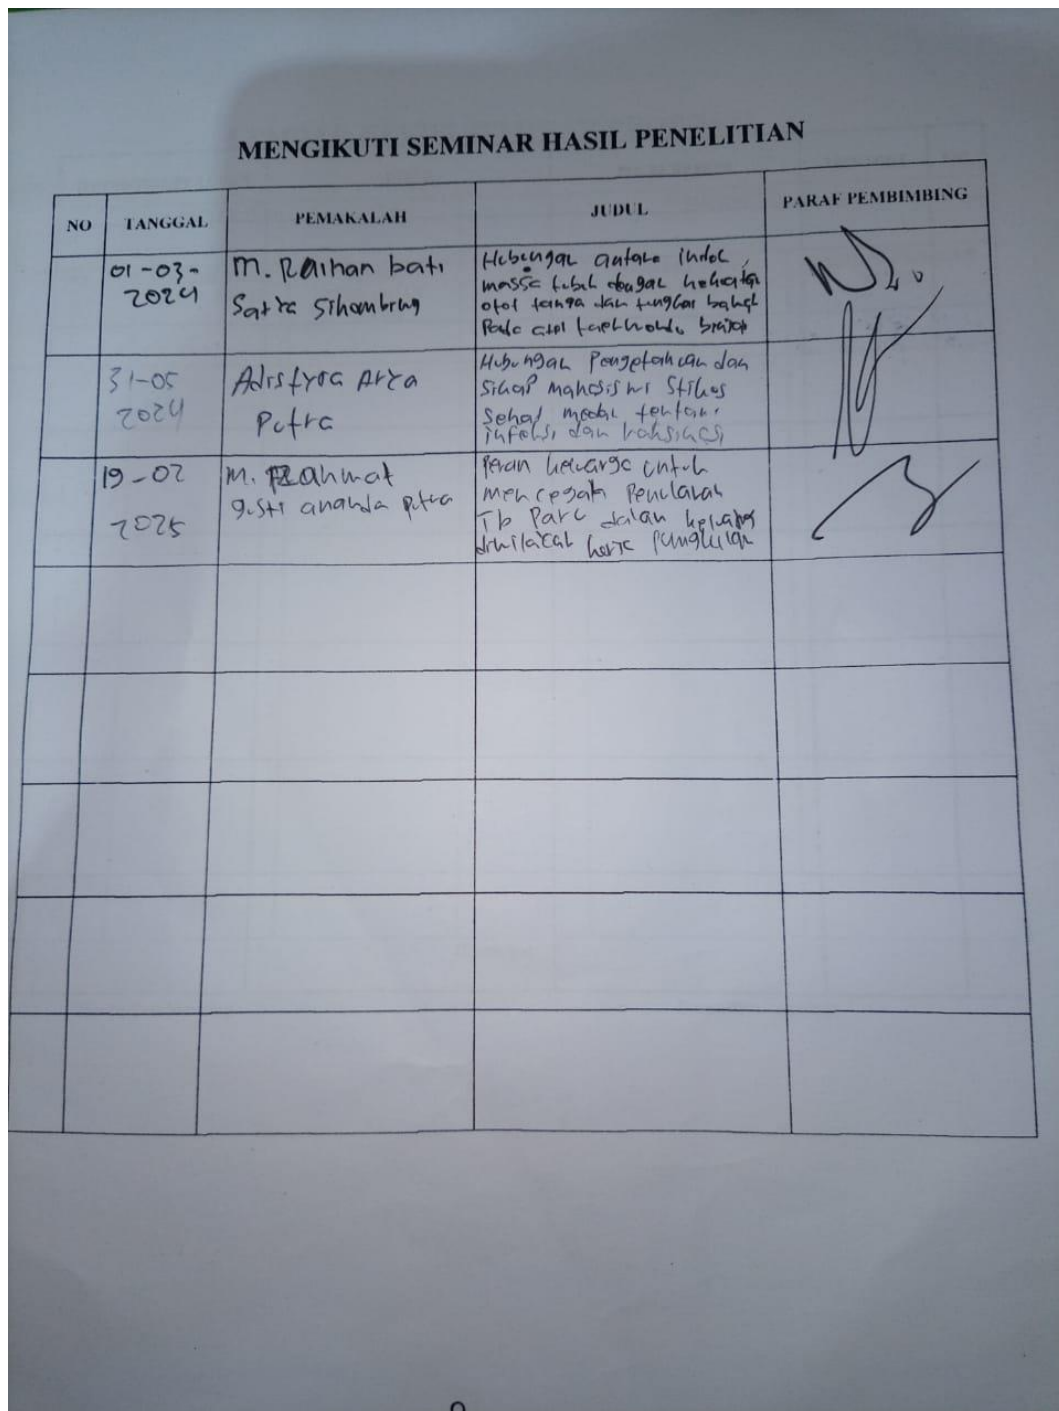 MENGIKUTI SEMINAR HASIL PENELITIAN
NO TANGGAL PEMAKALAH JUDUL PARAF PEMBIMBING
01-03-
2024
M. Raihan bati
Satya Sihombing
Hubungan antara indek
massa tubuh dengan kekuatan
otot tangan dan tungkai bawah
Pada atlet taekwondo
31-05
2024
Adistyra Arya
Putra
Hubungan Pengetahuan dan
Sikap mahasiswi Stikes
Sehat medan tentang
infeksi dan vaksinasi
19-02
2025
M. Rahmat
gusti ananda putra
Peran keluarga untuk
mencegah Penularan
Tb Paru dalam keluarga
diwilayah kerja